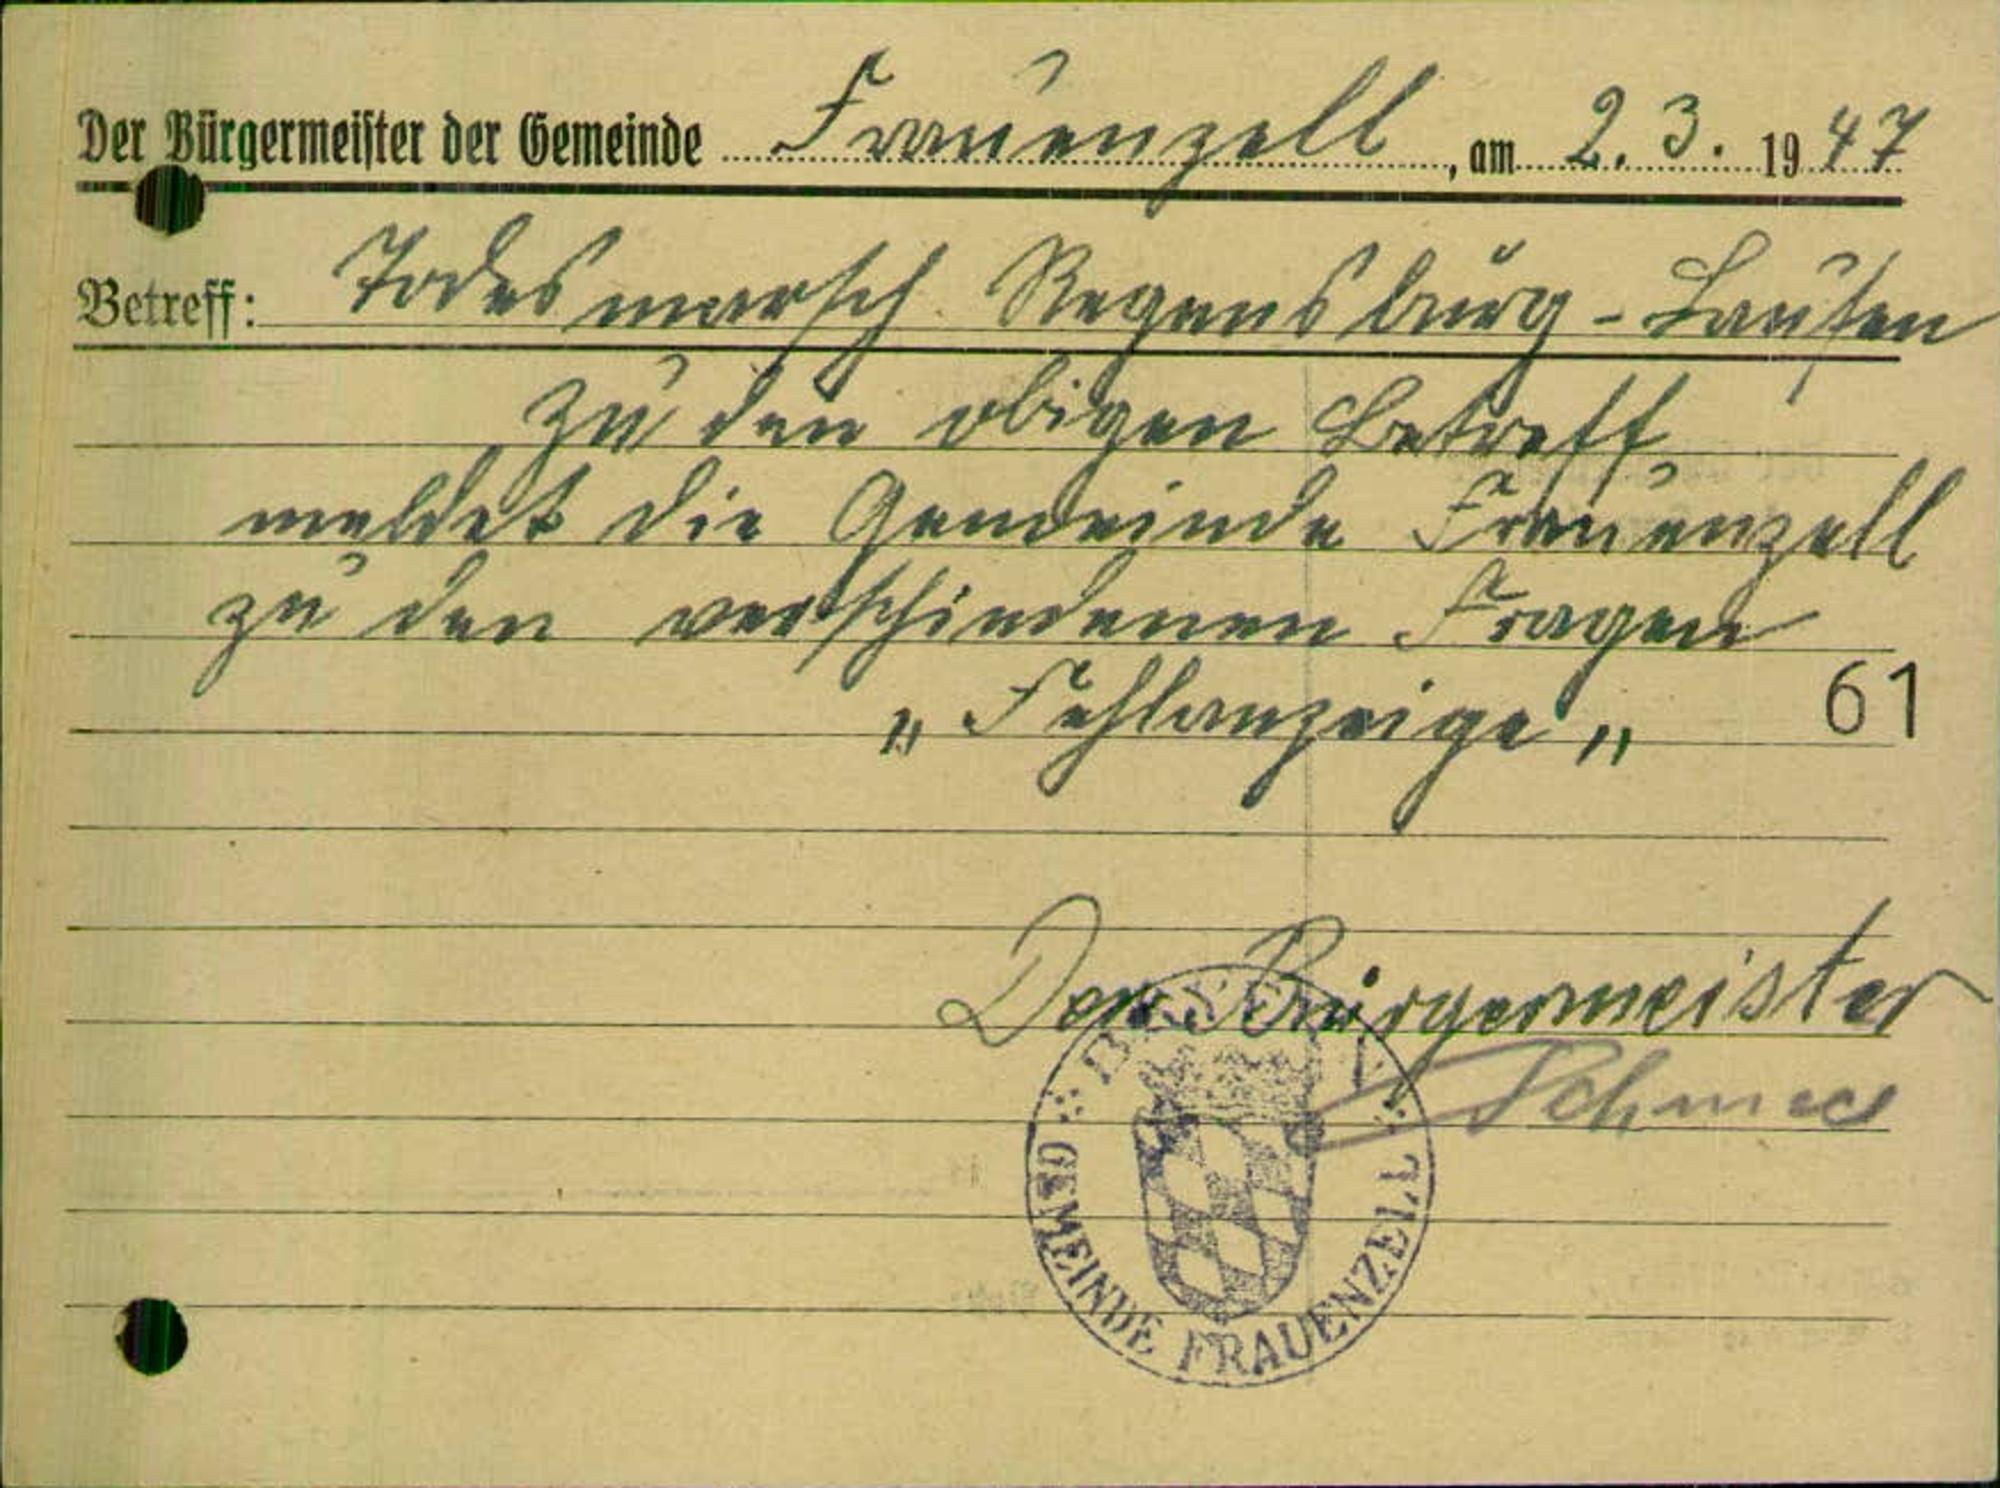 Der Bürgermeister der Gemeinde Frauenzell, am 2. 3. 1947
Betreff: Todesmarsch Regensburg - Laufen
Zu den obigen Betreff
meldet die Gemeinde Frauenzell
zu den verschiedenen Fragen
„ Fehlanzeige „
61
Der Bürgermeister
BAYERN
GEMEINDE FRAUENZELL